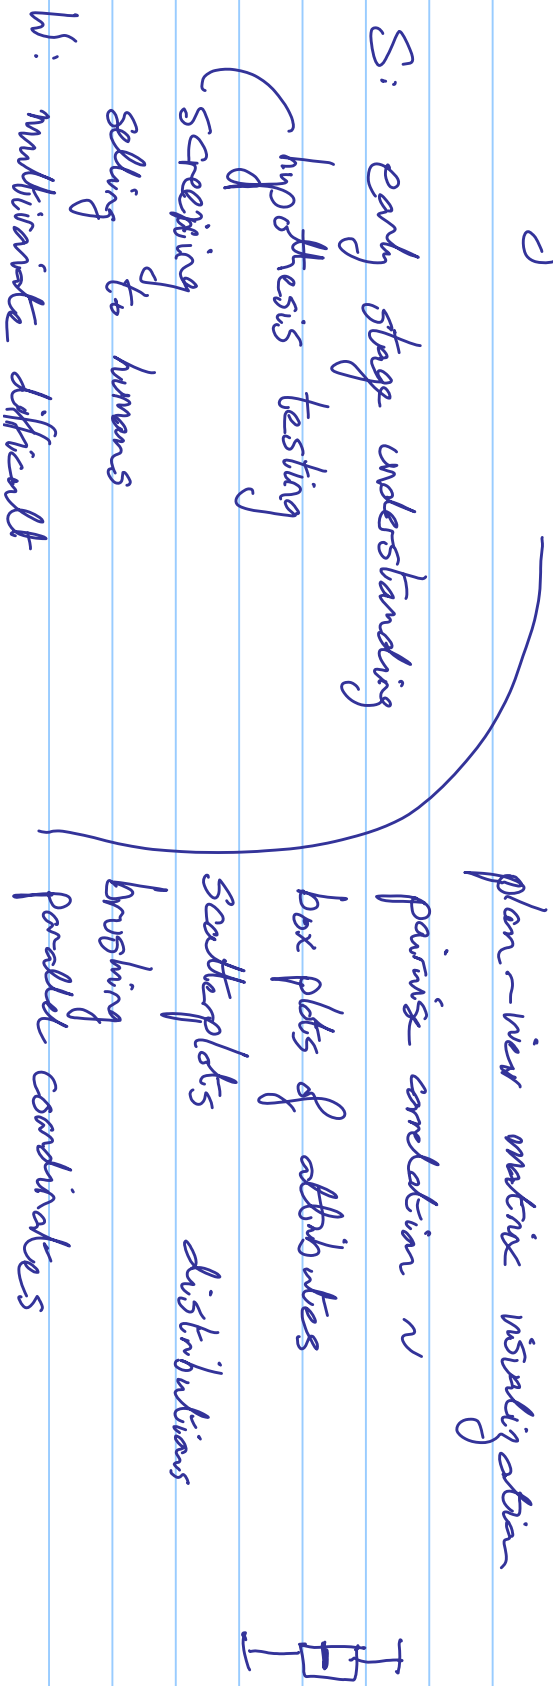 S: early stage understanding
hypothesis testing
screening
selling to humans
W: multivariate difficult
plan-view matrix visualization
pairwise correlation ~
box plots of attributes
scatterplots distributions
brushing
parallel coordinates